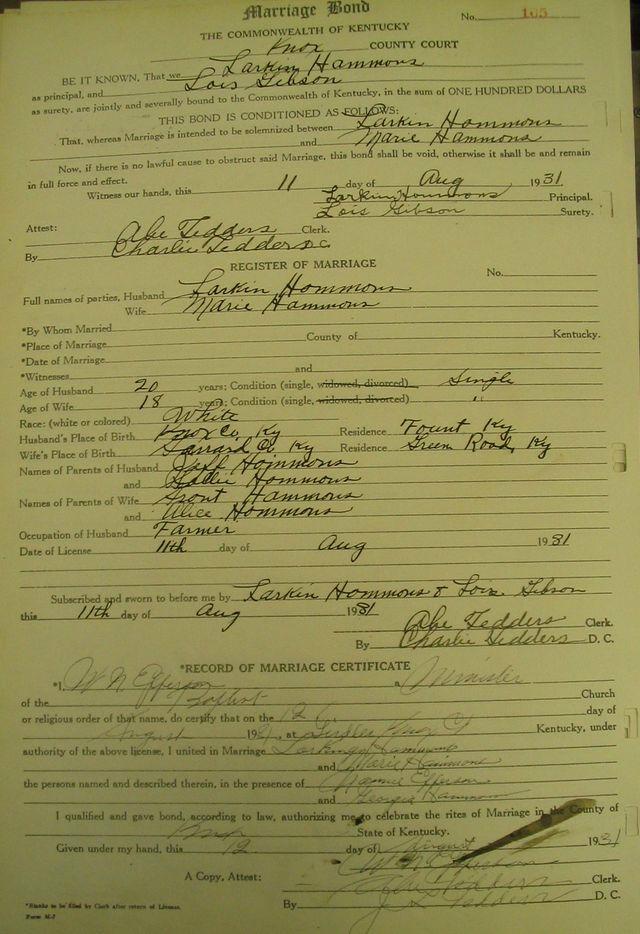 Marriage Bond
No. 105
THE COMMONWEALTH OF KENTUCKY
Knox COUNTY COURT
BE IT KNOWN, That we Larkin Hammons
as principal, and Lois Gibson
as surety, are jointly and severally bound to the Commonwealth of Kentucky, in the sum of ONE HUNDRED DOLLARS
THIS BOND IS CONDITIONED AS FOLLOWS:
That, whereas Marriage is intended to be solemnized between Larkin Hammons
and Marie Hammons
Now, if there is no lawful cause to obstruct said Marriage, this bond shall be void, otherwise it shall be and remain
in full force and effect.
Witness our hands, this 11 day of Aug 1931
Larkin Hommons Principal.
Lois Gibson Surety.
Attest: Abe Tedders Clerk.
By Charlie Tedders D.C.
REGISTER OF MARRIAGE
No.
Full names of parties, Husband Larkin Hommons
Wife Marie Hammons
*By Whom Married
*Place of Marriage County of Kentucky.
*Date of Marriage
*Witnesses and
Age of Husband 20 years; Condition (single, widowed, divorced) Single
Age of Wife 18 years; Condition (single, widowed, divorced) "
Race: (white or colored) White
Husband's Place of Birth Knox Co, Ky Residence Fount Ky
Wife's Place of Birth Garrard Co Ky Residence Green Road, Ky
Names of Parents of Husband Jeff Hommons
and Hommons
Names of Parents of Wife Grout Hammons
and Alice Hommons
Occupation of Husband Farmer
Date of License 11th day of Aug 1931
Subscribed and sworn to before me by Larkin Hommons & Lois Gibson
this 11th day of Aug 1931
Abe Tedders Clerk.
By Charlie Tedders D. C.
*RECORD OF MARRIAGE CERTIFICATE
*I, W N Epperson a Minister
of the Baptist Church
or religious order of that name, do certify that on the 12 day of
August 193 at Knox Kentucky, under
authority of the above license, I united in Marriage Larkin Hammons
and Marie Hammons
the persons named and described therein, in the presence of Epperson
and Georgia Hammons
I qualified and gave bond, according to law, authorizing me to celebrate the rites of Marriage in the County of
Knox State of Kentucky.
Given under my hand, this 12 day of August 1931
W N Epperson
A Copy, Attest: Abe Tedders Clerk.
By Tedders D. C.
*Blanks to be filed by Clerk after return of License.
Form M-7